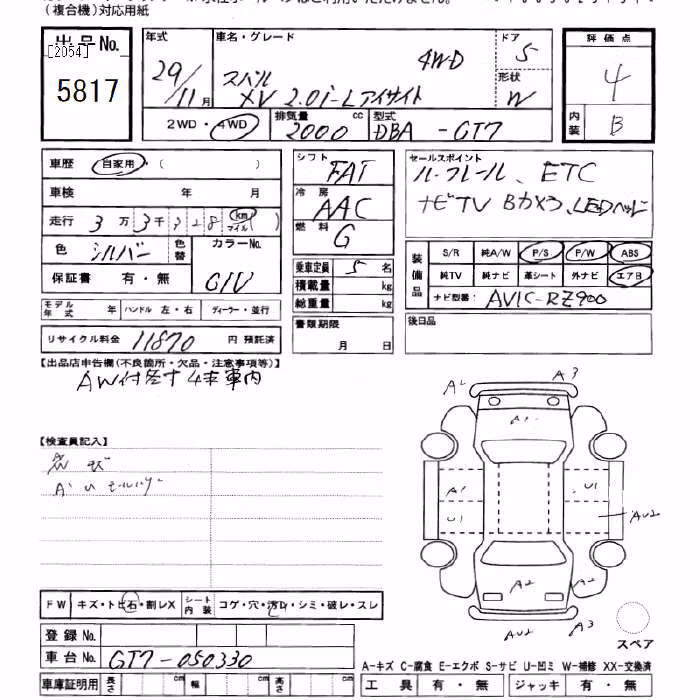 (複合機)対応用紙
出品No.
[2054]
5817
年式
29/11月
車名・グレード
4WD
スバル
XV 2.0i-Lアイサイト
ドア
5
形状
W
評価点
4
内装
B
2WD・4WD
排気量
2000
cc
型式
DBA - GT7
車歴
自家用・(　　)
車検　年　月
走行 3万3千328(km マイル)
色
シルバー
色替
カラーNo.
G1V
保証書　有・無
モデル年式　年
ハンドル 左・右
ディーラー・並行
リサイクル料金 11870 円 預託済
シフト
FAT
冷房
AAC
燃料
G
乗車定員 5 名
積載量 kg
総重量 kg
書類期限
月　日
セールスポイント
ルーフレール、ETC
ナビTV Bカメラ、LEDヘッド
装備品
S/R 純A/W P/S P/W ABS
純TV 純ナビ 革シート 外ナビ エアB
ナビ型番: AVIC-RZ900
後日品
【出品店申告欄(不良箇所・欠品・注意事項等)】
AW付 4本車内
【検査員記入】
FW
キズ・トビ石・割レX
シート内装
コゲ・穴・汚レ・シミ・破レ・スレ
登録No.
車台No.
GT7-050330
車庫証明用
長さ cm
幅 cm
高さ cm
A1
A3
A1
A1
U1
U1
AU2
A2
A2
AU2
A3
スペア
A-キズ C-腐食 E-エクボ S-サビ U-凹ミ W-補修 XX-交換済
工具 有・無
ジャッキ 有・無